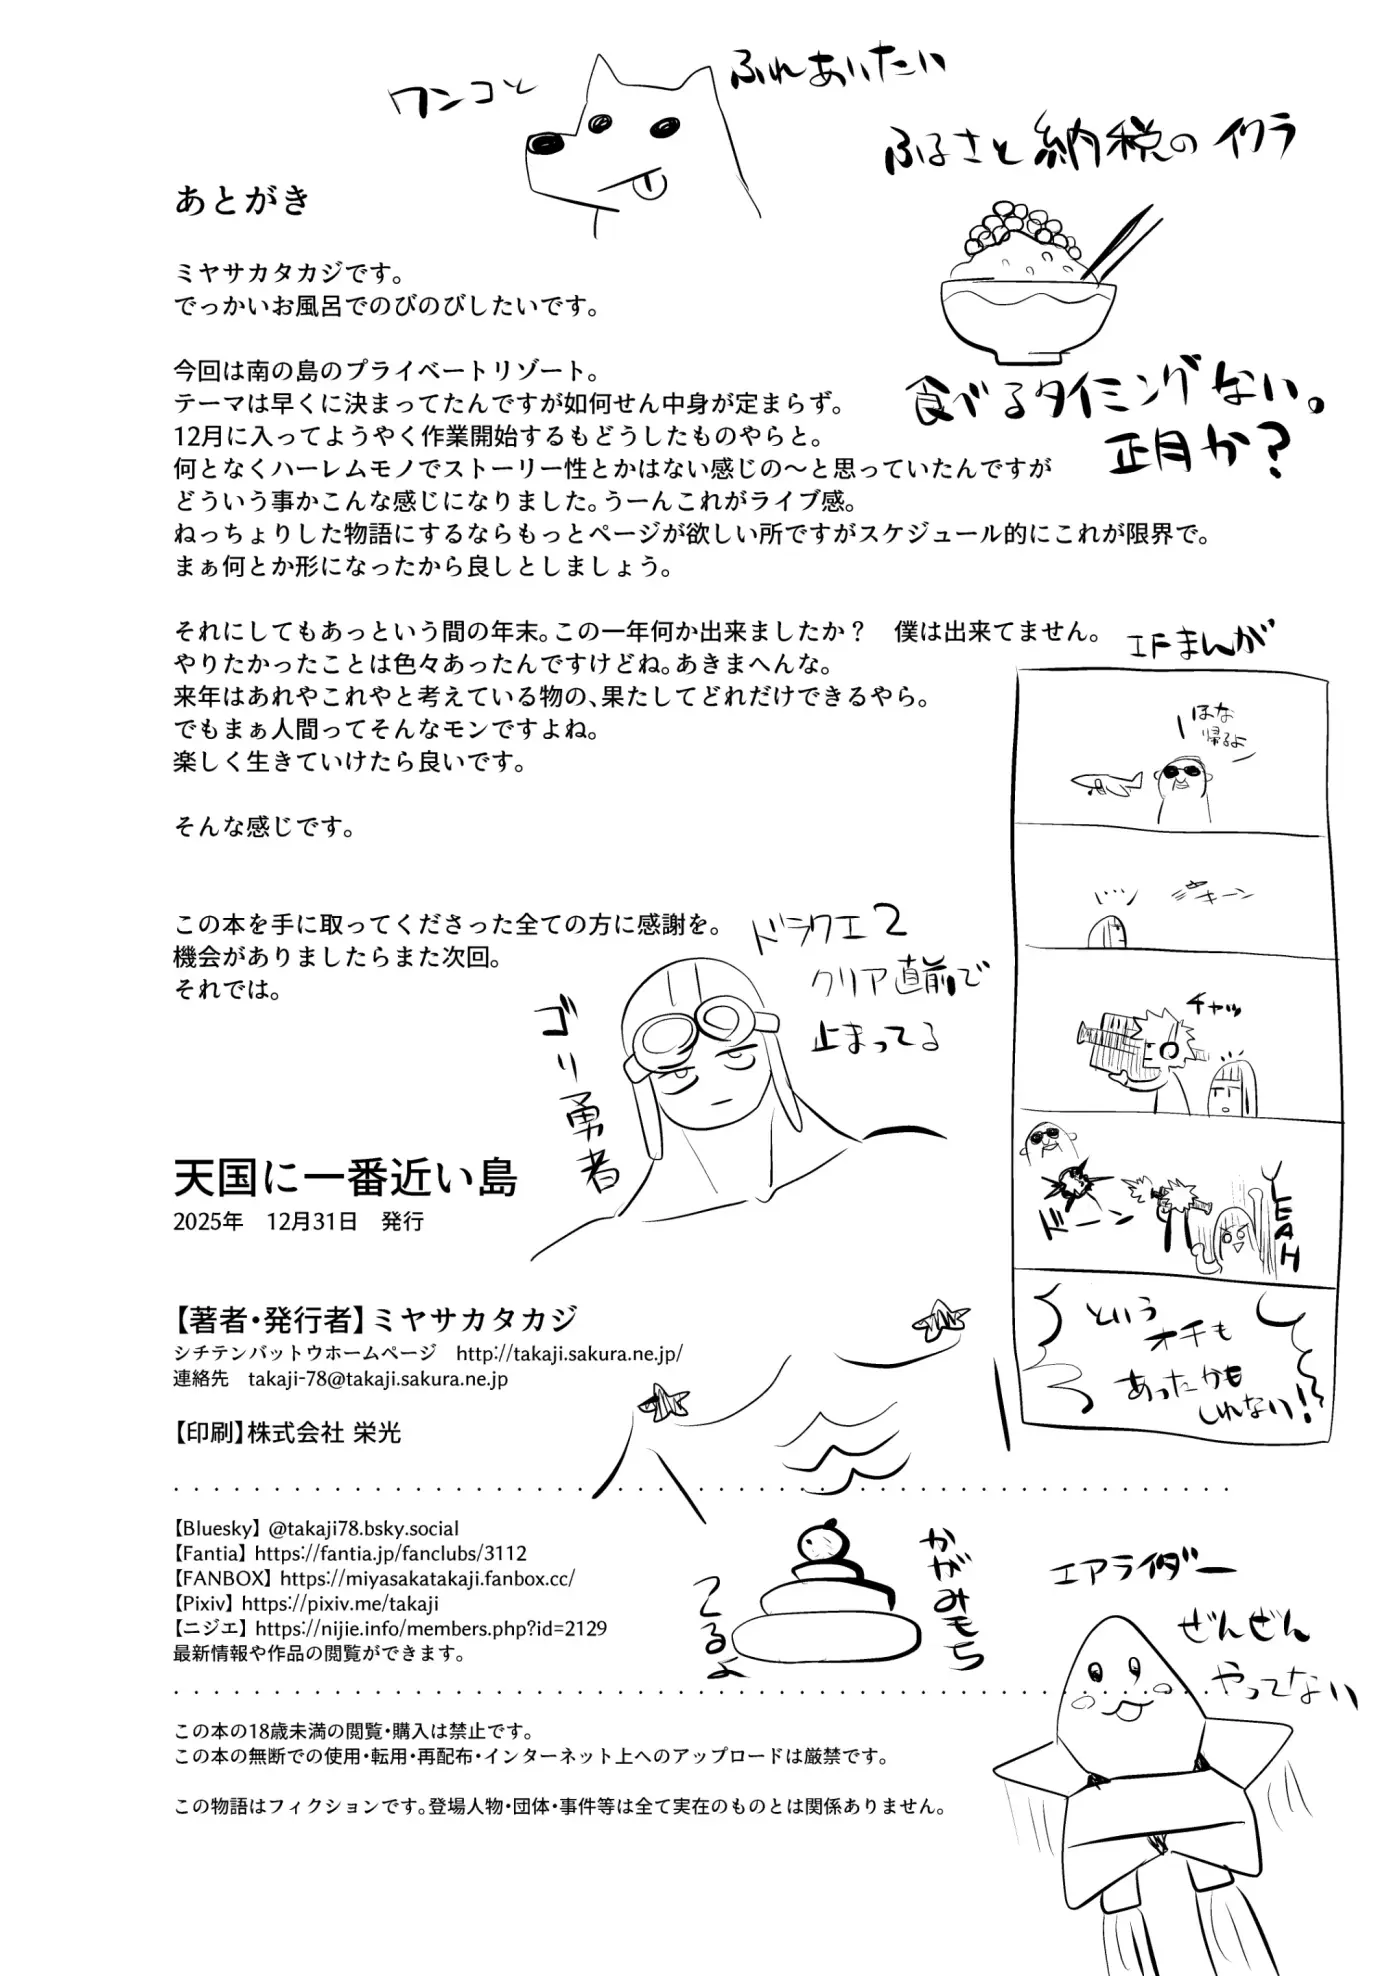 ワンコと
ふれあいたい
ふるさと納税のイクラ
食べるタイミングない。
正月か?
あとがき
ミヤサカタカジです。
でっかいお風呂でのびのびしたいです。
今回は南の島のプライベートリゾート。
テーマは早くに決まってたんですが如何せん中身が定まらず。
12月に入ってようやく作業開始するもどうしたものやらと。
何となくハーレムモノでストーリー性とかはない感じの〜と思っていたんですが
どういう事かこんな感じになりました。うーんこれがライブ感。
ねっちょりした物語にするならもっとページが欲しい所ですがスケジュール的にこれが限界で。
まぁ何とか形になったから良しとしましょう。
それにしてもあっという間の年末。この一年何か出来ましたか？　僕は出来てません。
やりたかったことは色々あったんですけどね。あきまへんな。
来年はあれやこれやと考えている物の、果たしてどれだけできるやら。
でもまぁ人間ってそんなモンですよね。
楽しく生きていけたら良いです。
そんな感じです。
この本を手に取ってくださった全ての方に感謝を。
機会がありましたらまた次回。
それでは。
IFまんが
ほな
帰るよ
キーン
チャッ
ドーン
YEAH
という
オチも
あったかも
しれない!
ドラクエ2
クリア直前で
止まってる
ゴリ勇者
天国に一番近い島
2025年　12月31日　発行
【著者・発行者】ミヤサカタカジ
シチテンバットウホームページ　http://takaji.sakura.ne.jp/
連絡先　takaji-78@takaji.sakura.ne.jp
【印刷】株式会社 栄光
【Bluesky】 @takaji78.bsky.social
【Fantia】 https://fantia.jp/fanclubs/3112
【FANBOX】 https://miyasakatakaji.fanbox.cc/
【Pixiv】 https://pixiv.me/takaji
【ニジエ】 https://nijie.info/members.php?id=2129
最新情報や作品の閲覧ができます。
かがみもち
てるよ
エアライダー
ぜんぜん
やってない
この本の18歳未満の閲覧・購入は禁止です。
この本の無断での使用・転用・再配布・インターネット上へのアップロードは厳禁です。
この物語はフィクションです。登場人物・団体・事件等は全て実在のものとは関係ありません。